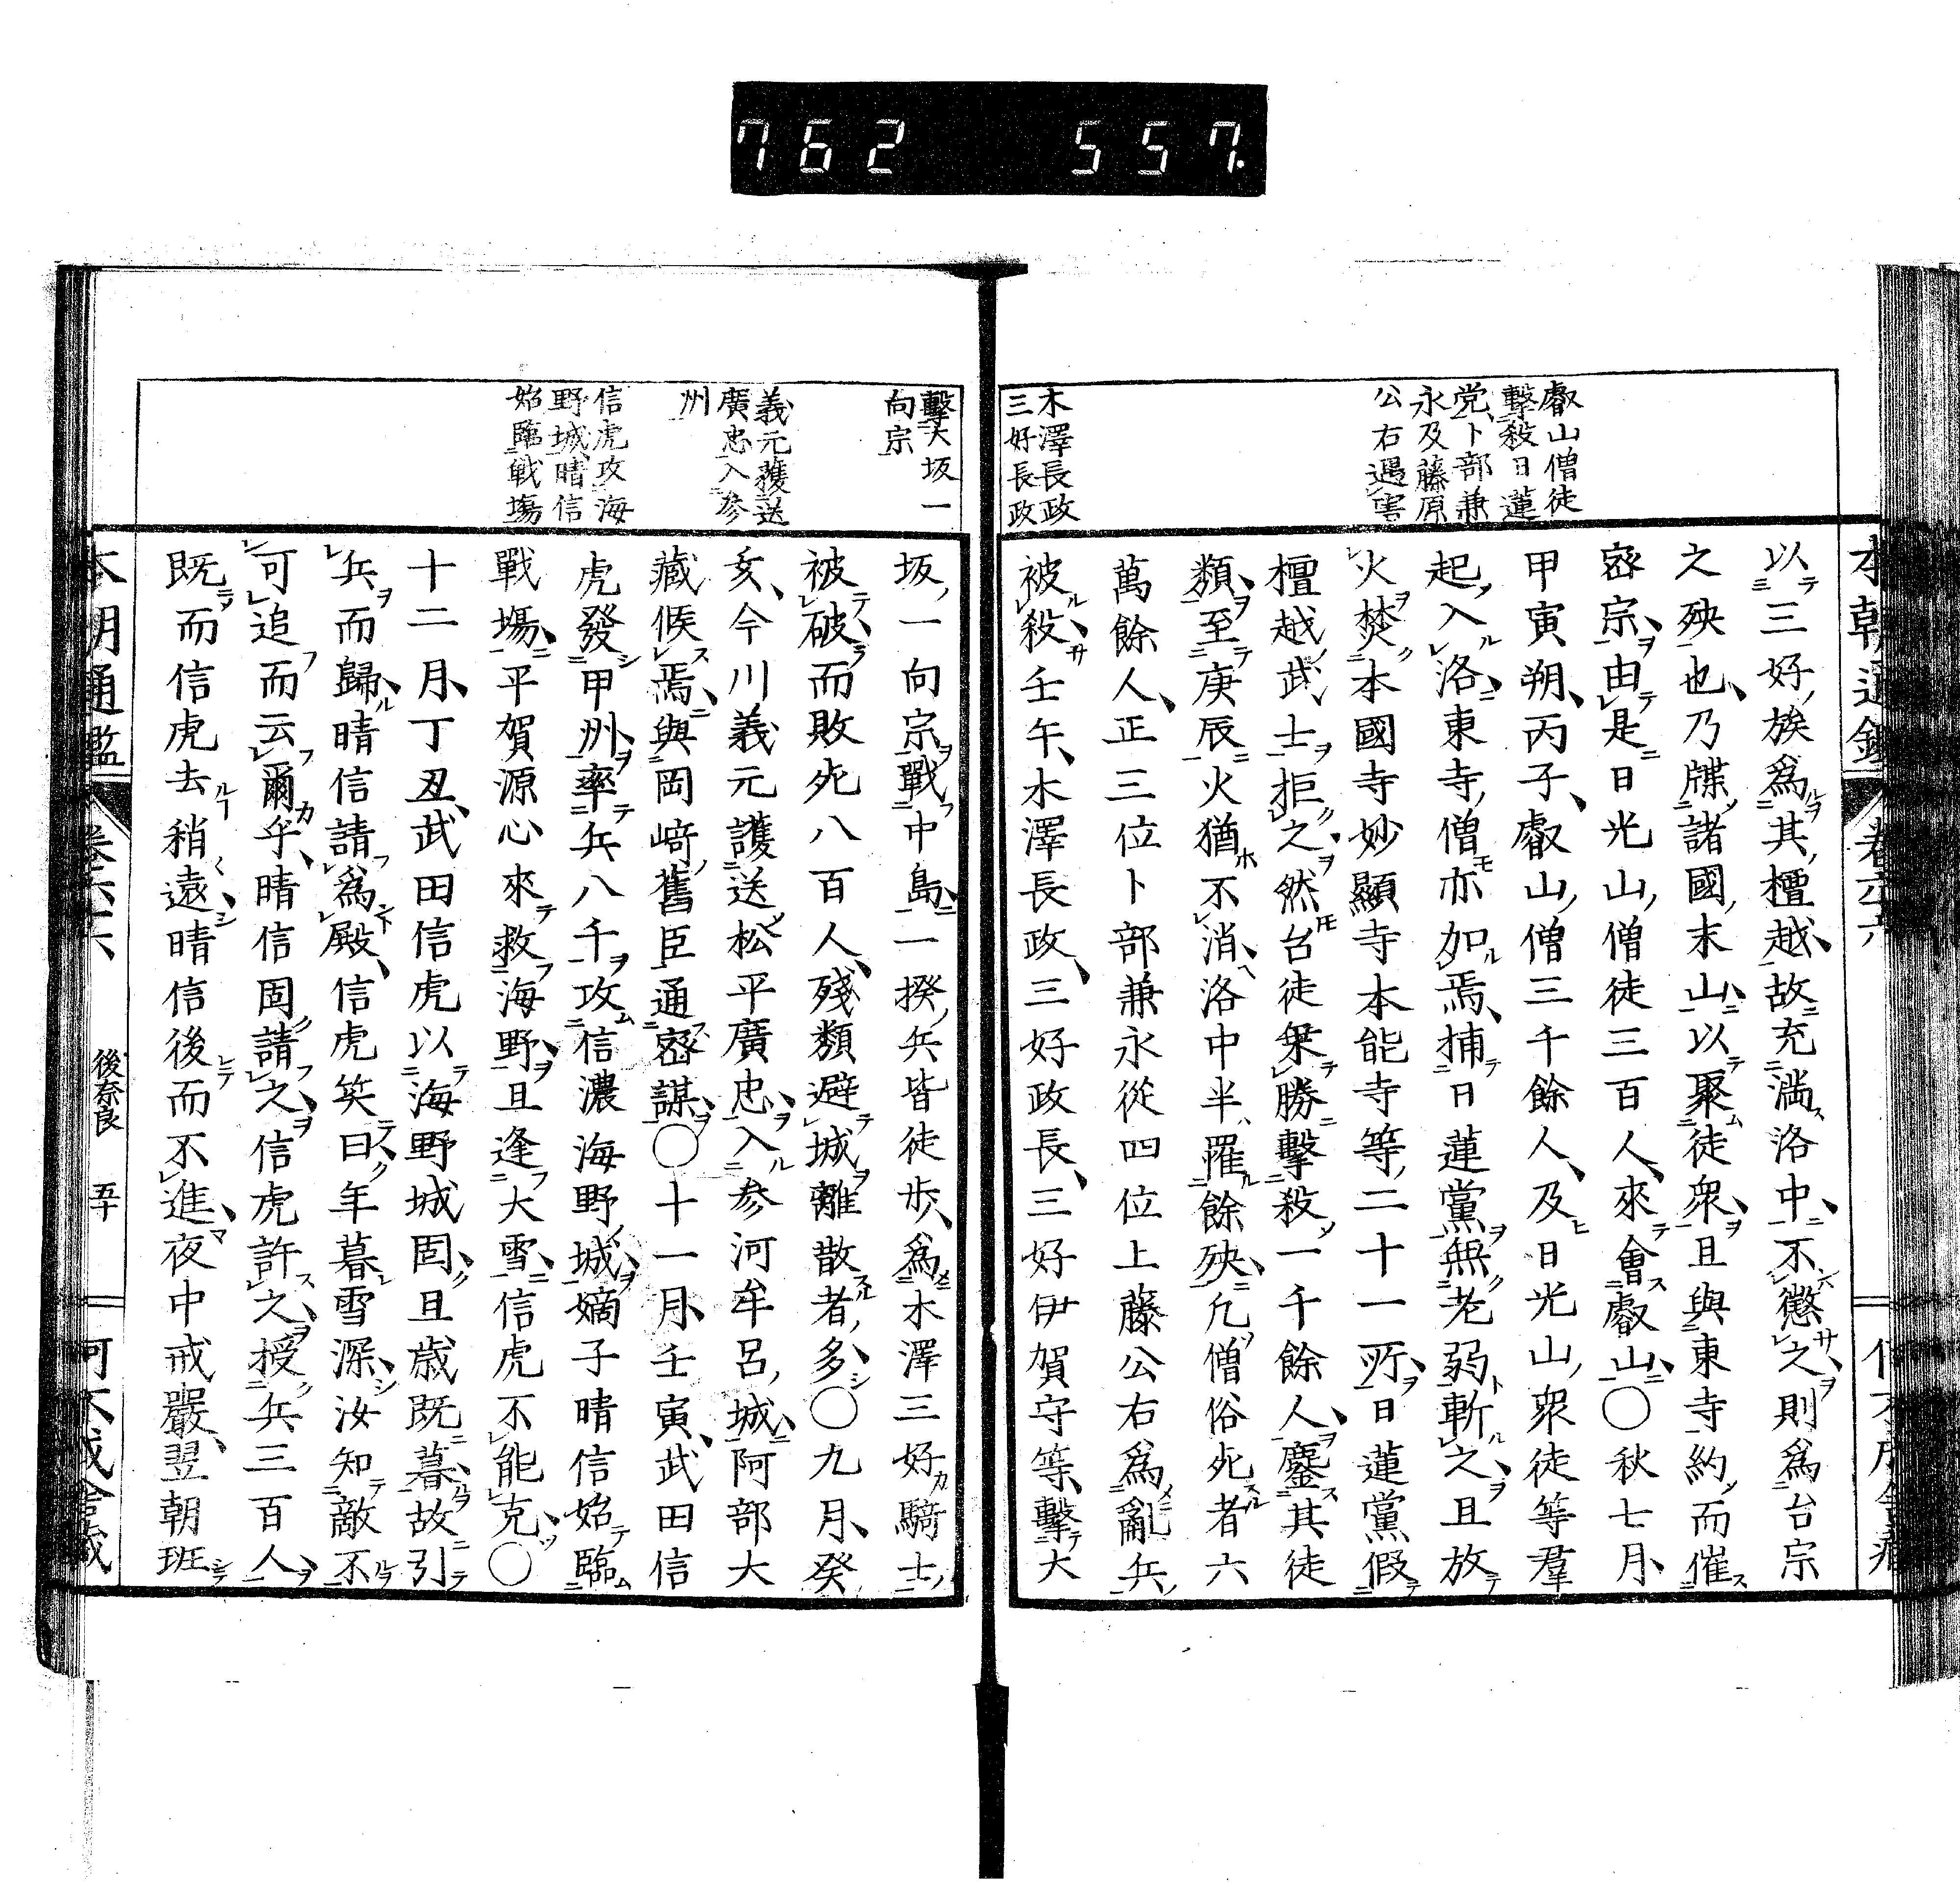 762 557.
叡山僧徒
擊殺日蓮
党、卜部兼
永及藤原
公右遇害
木澤長政
三好長政
以三好族爲其檀越故充滿洛中不懲之則爲台宗
之殃也乃牒諸國末山以聚徒衆且與東寺約而催
密宗由是日光山僧徒三百人來會叡山〇秋七月
甲寅朔丙子叡山僧三千餘人及日光山衆徒等羣
起入洛東寺僧亦如焉捕日蓮黨無老弱斬之且放
火焚本國寺妙顯寺本能寺等二十一所日蓮黨假
檀越武士拒之然台徒乗勝擊殺一千餘人鏖其徒
類至庚辰火猶不消洛中半罹餘殃凡僧俗死者六
萬餘人正三位卜部兼永從四位上藤公右爲亂兵
被殺壬午木澤長政三好政長三好伊賀守等擊大
擊大坂一
向宗
義元護送
廣忠入参
州
信虎攻海
野城晴信
始臨戰塲
坂一向宗戰中島一揆兵皆徒歩爲木澤三好騎士
被破而敗死八百人殘類避城離散者多〇九月癸
亥今川義元護送松平廣忠入参河牟呂城阿部大
藏候焉與岡﨑舊臣通密謀〇十一月壬寅武田信
虎發甲州率兵八千攻信濃海野城嫡子晴信始臨
戰塲平賀源心來救海野且逢大雪信虎不能克〇
十二月丁丑武田信虎以海野城固且歳既暮故引
兵而歸晴信請爲殿信虎笑曰年暮雪深汝知敵不
可追而云爾乎晴信固請之信虎許之授兵三百人
既而信虎去稍遠晴信後而不進夜中戒嚴翌朝班
本朝通鑑 卷六十六 後奈良 五十